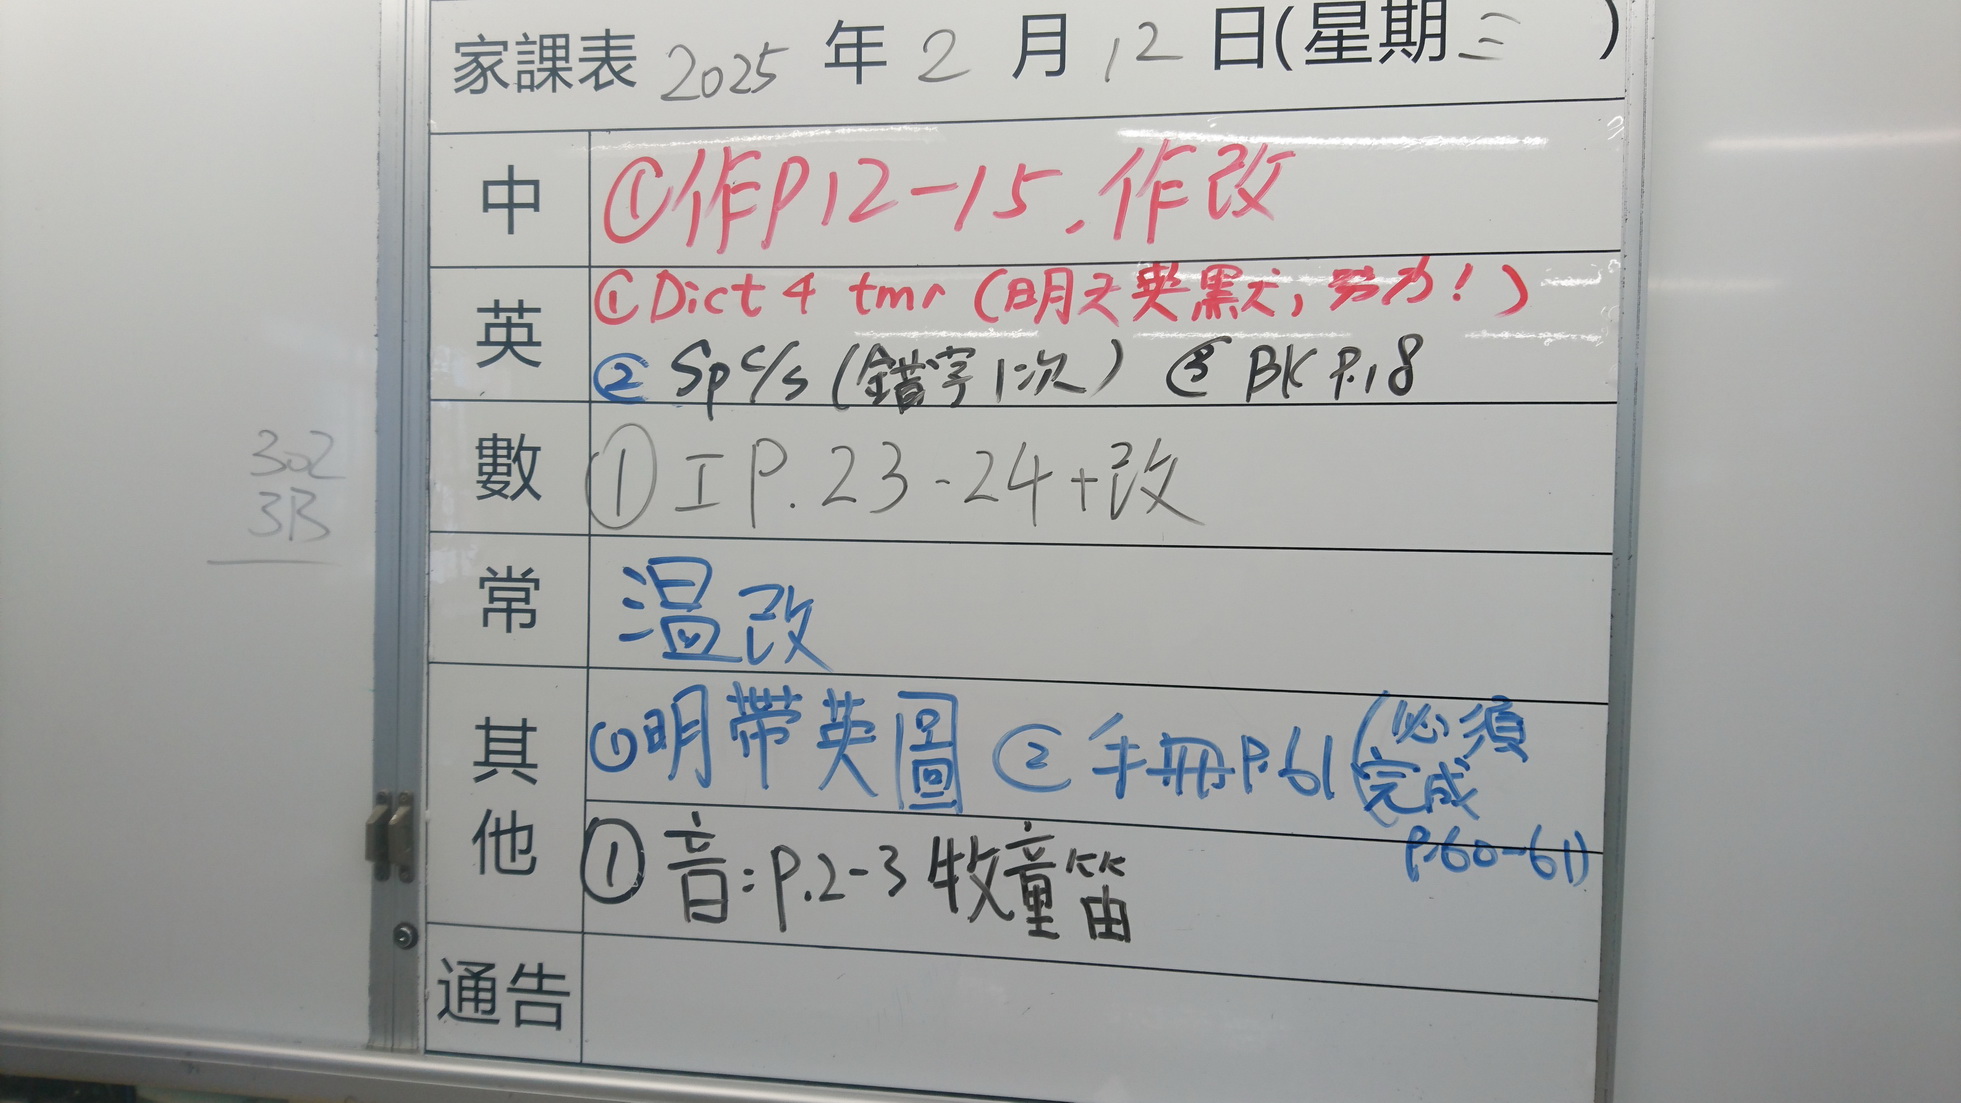 家課表 2025 年 2 月 12 日(星期三 )
中 ①作P12-15,作改
英 ①Dict 4 tmr (明天英默六,努力!)
② Sp c/s (錯字1次) ③ BK P.18
數 ① 工 P.23-24+改
302
3B
常 温改
其他 ①明帶英圖 ② 手冊P.61 (必須
完成
P.60-61)
① 音:P.2-3 牧童笛
通告